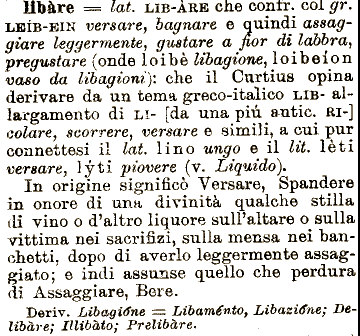 libàre = lat. LIB-ÀRE che confr. col gr.
LEÍB-EIN versare, bagnare e quindi assag-
giare leggermente, gustare a fior di labbra,
pregustare (onde loibè libagione, loibeíon
vaso da libagioni): che il Curtius opina
derivare da un tema greco-italico LIB- al-
largamento di LI- [da una piú antic. RI-]
colare, scorrere, versare e simili, a cui pur
connettesi il lat. lino ungo e il lit. lèti
versare, lýti piovere (v. Liquido).
In origine significò Versare, Spandere
in onore di una divinità qualche stilla
di vino o d'altro liquore sull'altare o sulla
vittima nei sacrifizi, sulla mensa nei ban-
chetti, dopo di averlo leggermente assag-
giato; e indi assunse quello che perdura
di Assaggiare, Bere.
Deriv. Libagióne = Libaménto, Libazióne; De-
libàre; Illibàto; Prelibàre.